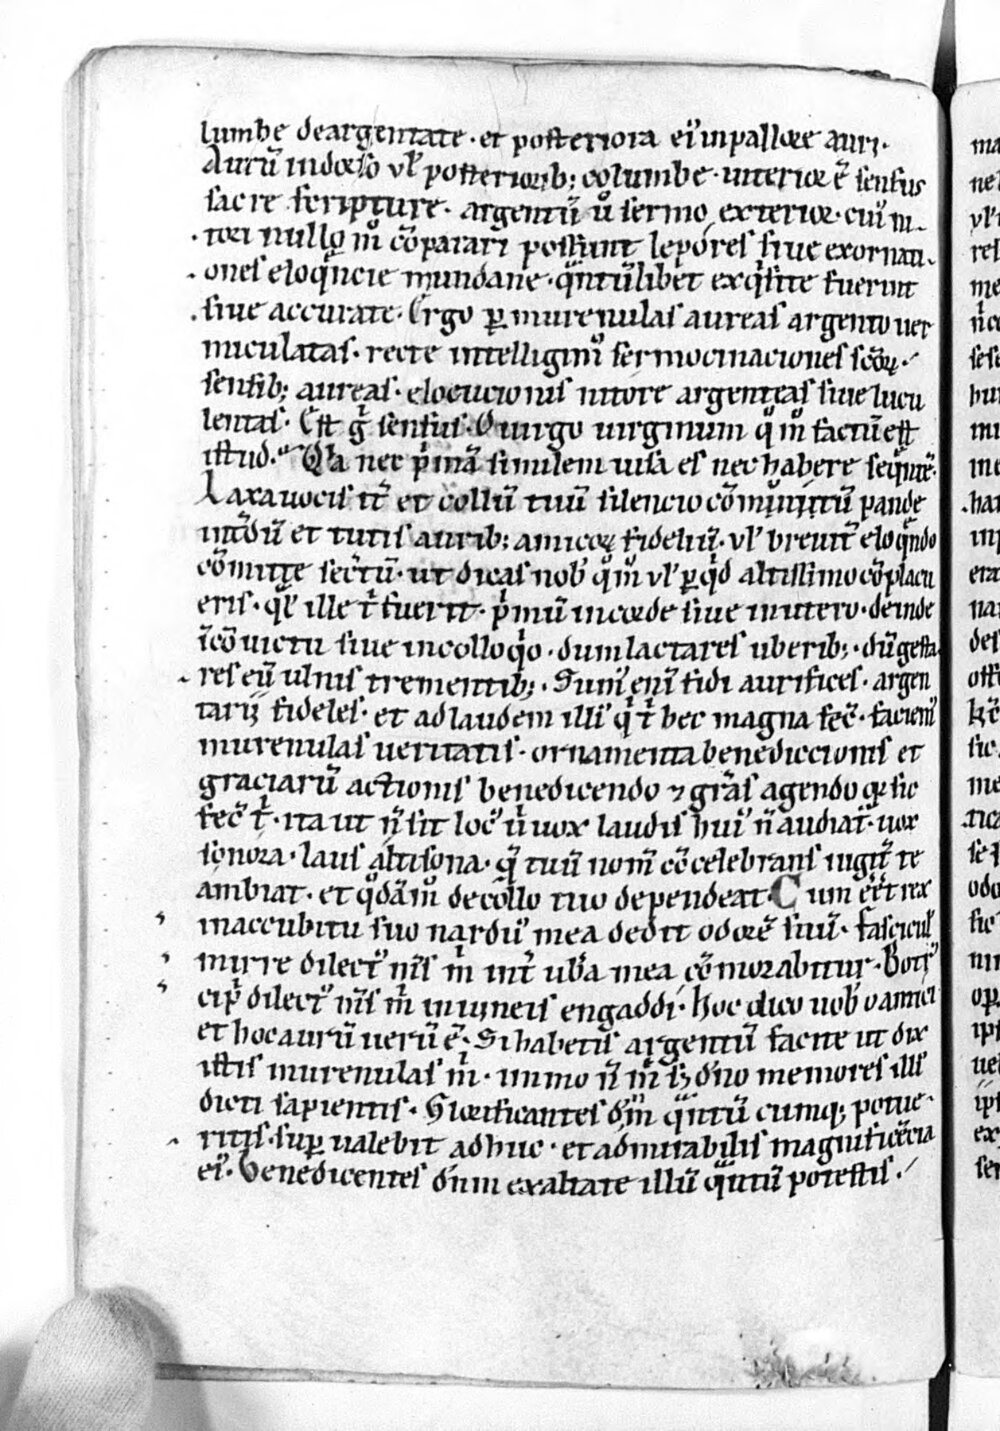 lumbe deargentate · et posteriora ei᷒ inpallore auri ·
Aurū indorso vl̓ posteriorib; columbe · interior ē sensus
sacre scripture · argentū ū sermo exterior · cui᷒ ni-
tori nullo m̊ cōparari possunt lepores siue exornati-
ones eloq̄ncie mundane · q̄ntūlibet exq̇site fuerint
siue accurate · Ergo ꝑ murenulas aureas argento uer
miculatas · recte intelligim᷒ sermocinaciones scōꝝ ·
sensib; aureas · elocucionis nitore argenteas siue lucu
lentas · Est g̊ sensus · O uirgo uirginum q̊m᷒ factū est
istud · Q̇a nec p̓mā similem uisa es nec habere seq̄ntē ·
Laxa uocis it̄ et collū tuū silencio cōmunitū pande
int̄dū et tutis aurib; amicoꝝ fideliū · vl̓ breuit̄ eloq̄ndo
cōmitte secr̄tū · ut dicas nob̓ q̊m᷒ vl̓ ꝑ q̇d altissimo cōplacu
eris · q̄l̓ ille t̓ fuerit · p̓mū incorde siue inutero · deinde
ı̄cōuictu siue incolloq̇o · dum lactares uberib; · dū gesta
res eū ulnis trementib; · Sum᷒ enı̄ fidi aurifices · argen
tarij fideles · et ad laudem illi᷒ q̇ t̓ hec magna fec̄ · faciem᷒
murenulas ueritatis · ornamenta benediccionis et
graciarū actionis benedicendo ⁊ gr̄as agendo qꝛ sic
fec̄ t̓ · ita ut n̄ sit loc᷒ u̇ uox laudis hui᷒ n̄ audiat᷒ · uox
sonora · laus altisona · q̄ tuū nom̄ cōcelebrans iugit̄ te
ambiat · et q̊dām᷒ decollo tuo dependeat · Cum eēt rex
inaccubitu suo nardu᷒ mea dedit odorē suū · fascicul᷒
mirre dilect᷒ m̄s m̓ int̄ ub̄a mea cōmorabitur · Botr᷒
cip̓ dilect᷒ m̄s m̓ in uineis engaddi · hoc dico uob̓ o amici
et hoc aurū uerū ē · Si habetis argentū facite ut dix
istis murenulas m̓ · immo n̄ m̓ sꝫ dn̄o memores illi᷒
dicti sapientis · Glorificantes dn̄m q̄ntū cumqꝫ potue-
ritis · suꝑ ualebit adhuc · et admirabilis magnificēcia
ei᷒ · Benedicentes dn̄m exaltate illū q̄ntū potestis ·